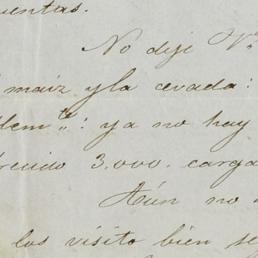 uentas.
No dije V.
maiz y la cevada:
dem.te: ya no hay
recido 3.000. carga
Aún no
los visito bien se